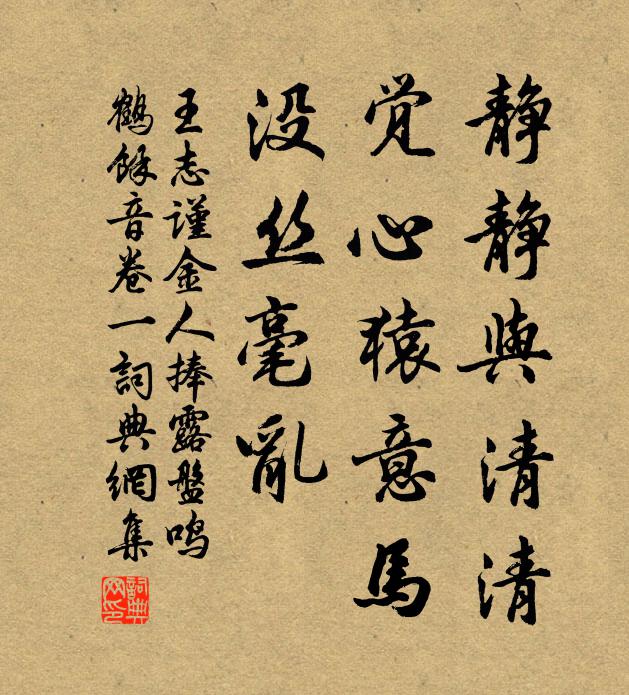 静静與清清
觉心猿意馬
没丝毫亂
王志谨金人捧露盤鸣
鶴餘音卷一詞典網集
詞典网印